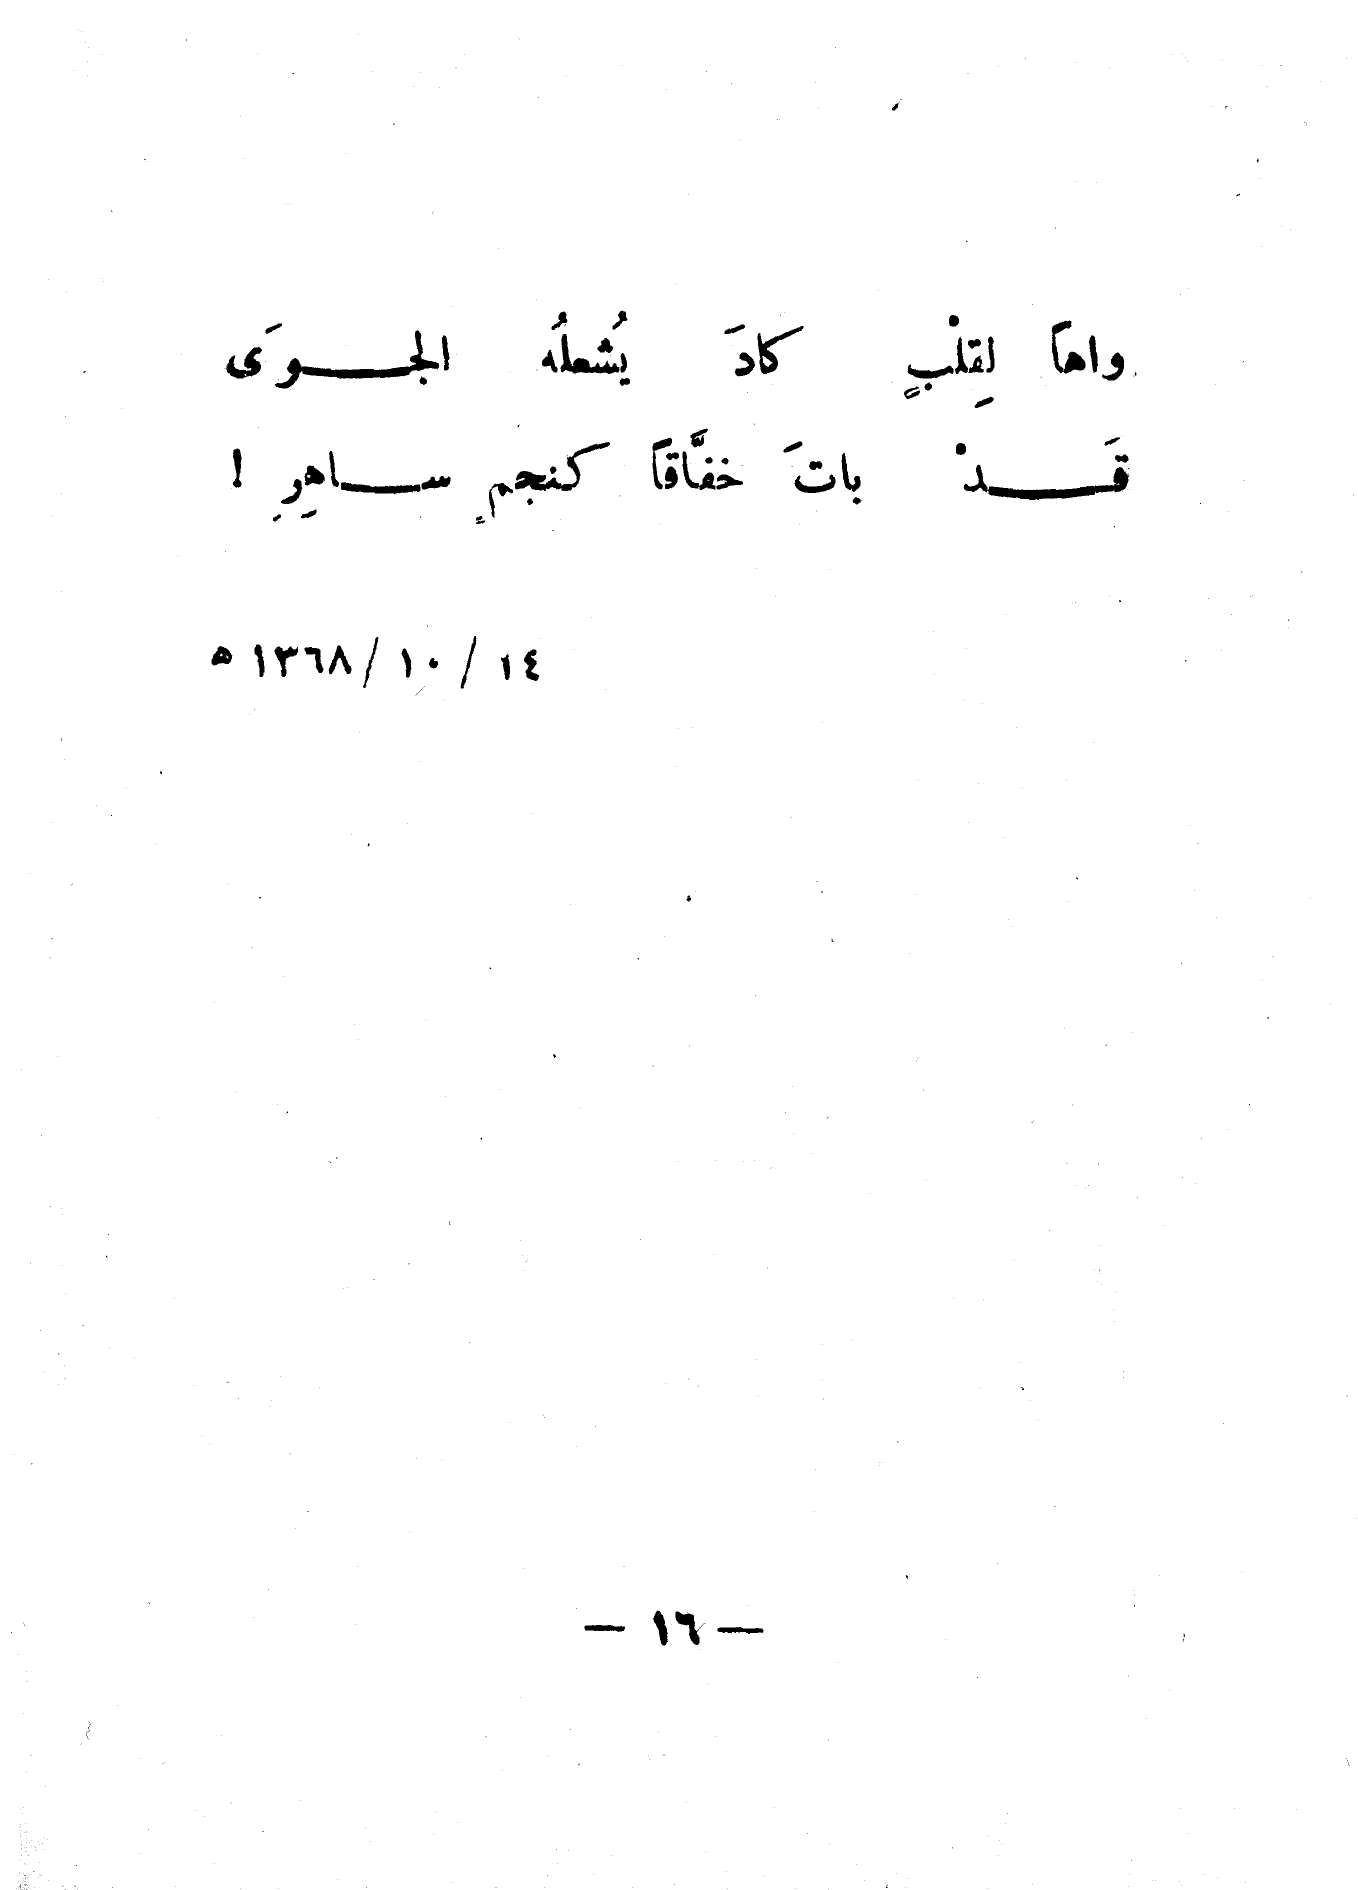 واهاً لِقلْبٍ كادَ يُشعلُه الجــوَى
قَــدْ باتَ خفَّاقاً كنجمٍ ســاهِرِ !
١٤ / ١٠ / ١٣٦٨ ه
— ١٦ —